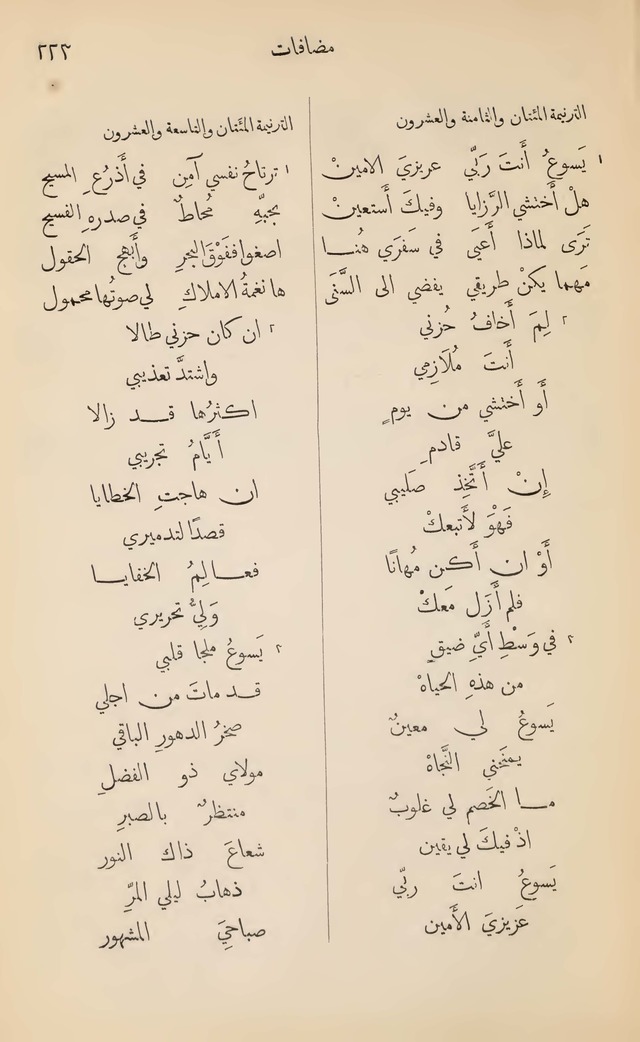 مضافات ٢٢٣
الترنيمة المئتان والثامنة والعشرون
١ يَسوعُ أَنتَ رَبِّي عريزيَ الامينْ
هلْ أَختشي الرَّزايا وفيكَ أَستعينْ
تَرَى لماذا أَعيَى في سَفَري هُنــا
مَهما يكنْ طريقي يفضي الى السَّنَى
٢ لِمَ أَخافُ حُزني
أَنتَ مُلَازِمي
أَو أَختشي من يومٍ
عليَّ قادمِ
إِنْ أَتَّخِذ صَليبي
فَهْوَ لأَتبعكْ
أَوْ ان أَكن مُهانًا
فلم أَزَل مَعكْ
٣ في وَسْطِ أَيِّ ضيقٍ
من هذهِ الحياهْ
يَسوعُ لي معينٌ
يمنحُني النَّجاهْ
مــا الخَصم لي غلوبٌ
اذْ فيكَ لي يقين
يَسوعُ انتَ ربِّي
عَزيزيَ الأَمين
الترنيمة المئتان والتاسعة والعشرون
١ ترتاحُ نفسي آمِن في أَذرُعِ المسيح
بحبِّهِ مُحاطٌ في صدرهِ الفسيح
اصغوا ففَوْقَ البحرِ وأَبهج الحقول
ها نغمةُ الاملاكِ لي صوتُها محمول
٢ ان كان حزني طالا
واشتدَّ تعذيبي
اكثرُها قــد زالا
أَيَّامُ تجريبي
ان هاجتِ الخطايا
قصدًا لتدميري
فعــالِمُ الخفايــا
وَليُّ تحريري
٣ يَسوعُ ملجا قلبي
قــد ماتَ من اجلي
صخرُ الدهورِ الباقي
مولاي ذو الفضلِ
منتظرٌ بالصبرِ
شعاعَ ذاك النور
ذهابُ ليلي المرِّ
صباحيَ المشهور